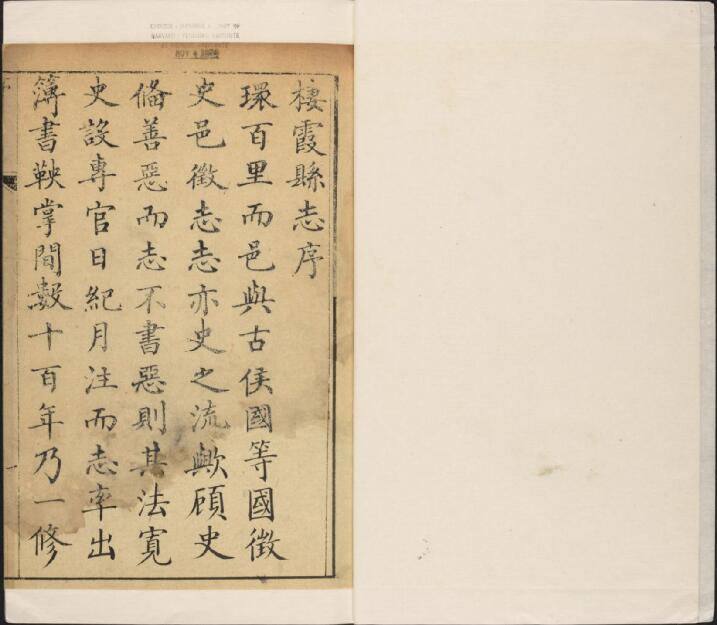 棲霞縣志序
環百里而邑與古侯國等國徵
史邑徵志志亦史之流歟頋史
俻善惡而志不書惡則其法寛
史設專官日紀月注而志率出
簿書鞅掌間數十百年乃一修